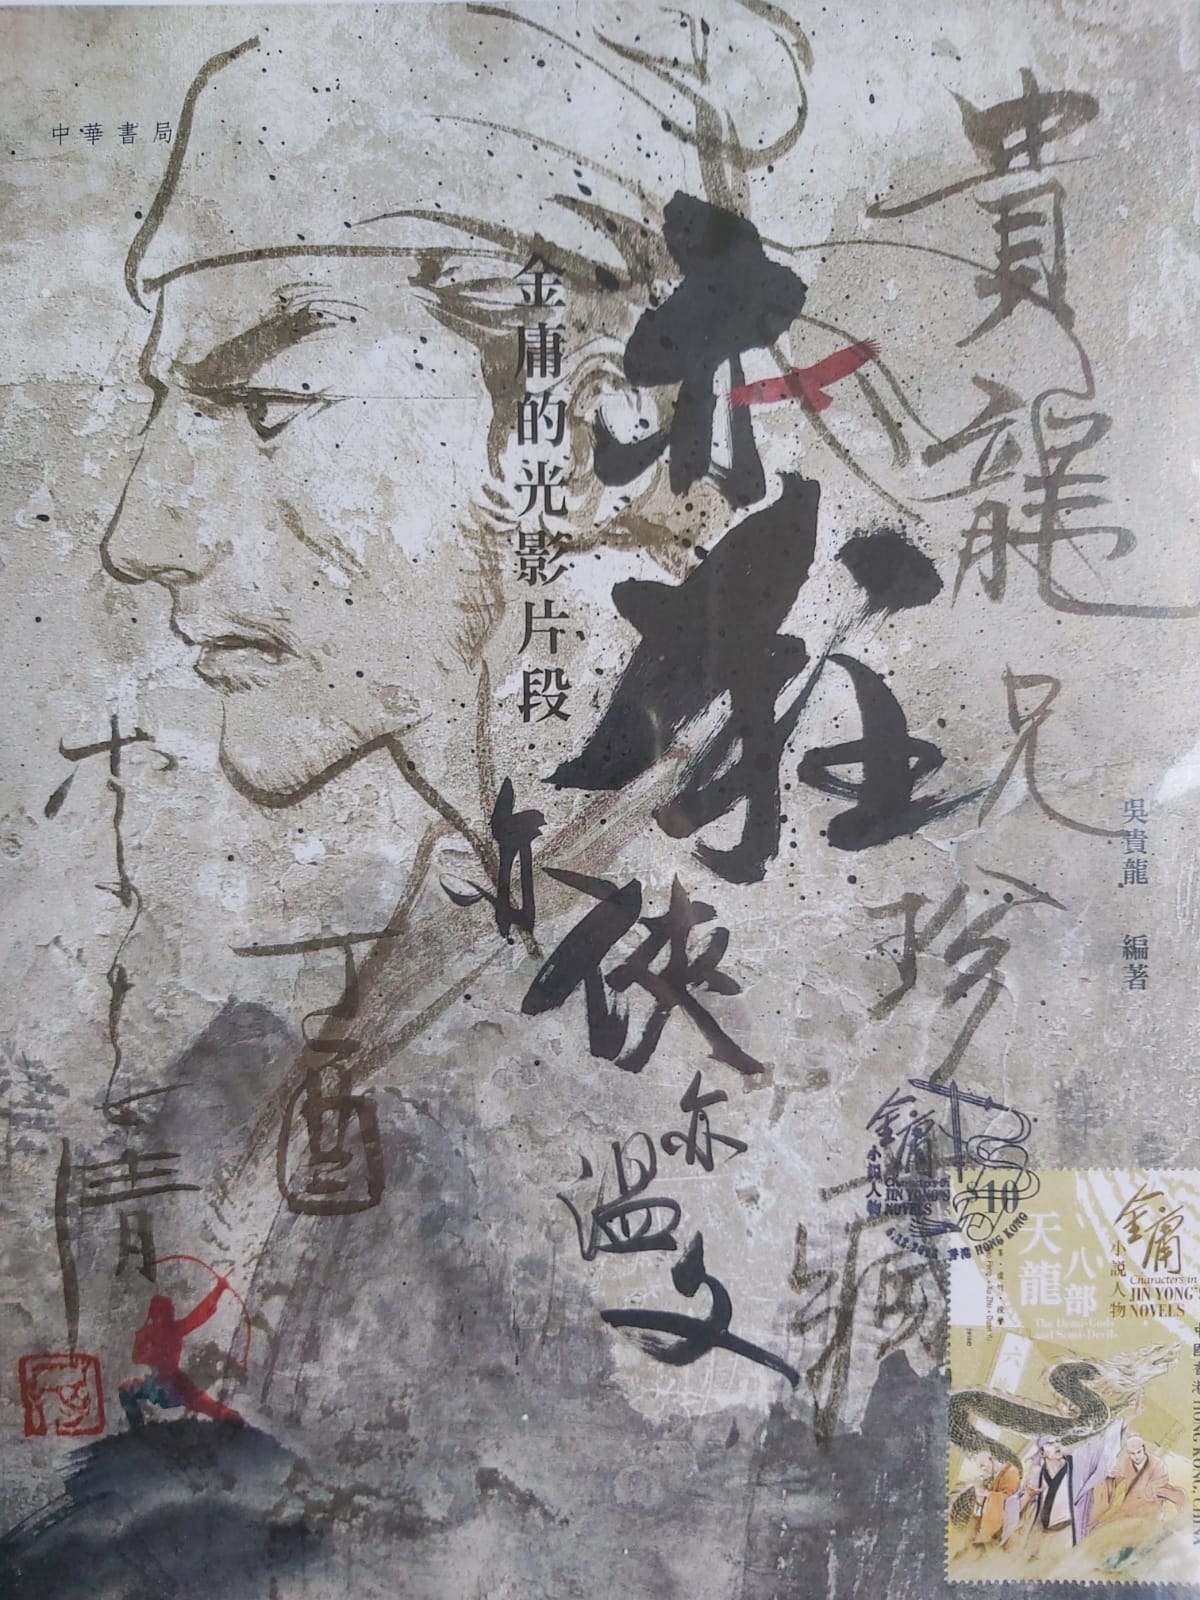 中華書局
貴龍兄珍
吳貴龍 編著
亦狂
亦俠
亦溫文
金庸的光影片段
李志清
丁酉
金庸
小說人物
Characters in
JIN YONG'S
NOVELS
香港 HONG KONG
$10
天龍
八部
The Demi-Gods
and Semi-Devils
金庸
小說人物
Characters in
JIN YONG'S
NOVELS
中國香港 HONG KONG, CHINA